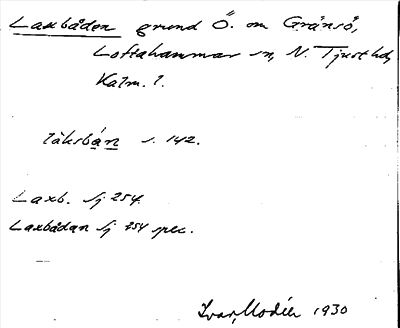 Laxbåden grund Ö. om Gränsö,
Loftahammar sn, N. Tjust hd,
Kalm. l.
läksbán s. 142.
Laxb. Sj 254.
Laxbådan Sj 254 spec.
Ivar Modéer 1930